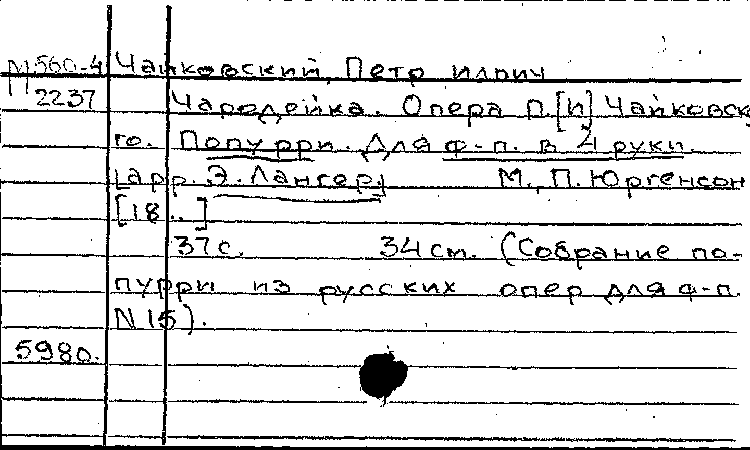 М 560-4 Чайковский, Петр Илпич
2237 Чародейка. Опера П.[И] Чайковско
го. Попурри. Для ф-п. в 4 руки.
[арр. Э. Лангер] М., П. Юргенсон
[18..]
37 с. 34 см. (Собрание по-
пурри из русских опер для ф-п.
N 15).
5980.